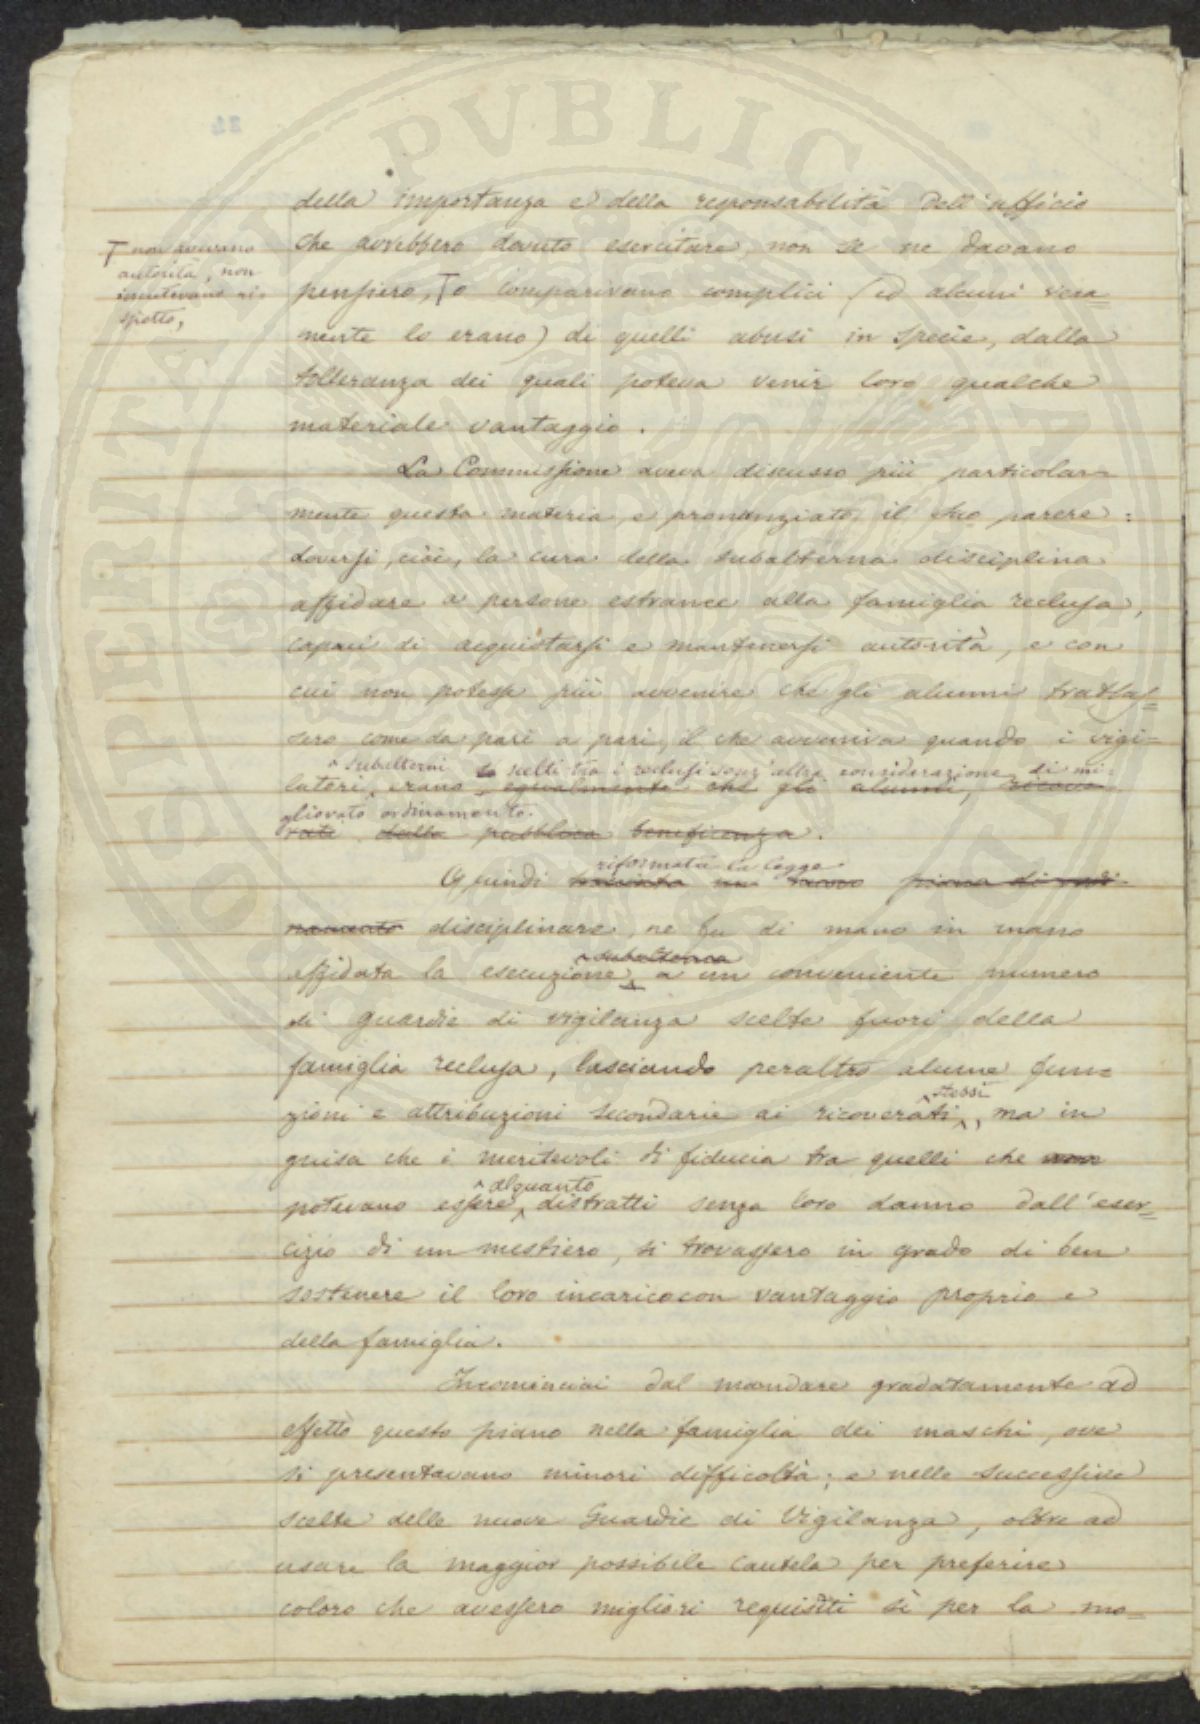 della importanza e della responsabilità dell'officio
che avrebbero dovuto esercitare, non se ne davano
pensiero, T o comparivano complici (ed alcuni vera=
T non avevano
autorità, non
incutevano ri-
spetto,
mente lo erano) di quelli abusi in specie, dalla
tolleranza dei quali poteva venir loro qualche
materiale vantaggio.
La Commissione aveva discusso più particolar=
mente questa materia, e pronunziato il suo parere:
doversi, cioè, la cura della subalterna disciplina
affidare a persone estranee alla famiglia reclusa,
capaci di acquistarsi e mantenersi autorità, e con
cui non potesse più avvenire che gli alunni trattas=
sero come da pari a pari, il che avveniva quando i vigi=
subalterni scelti tra i reclusi senz'altra considerazione di mi=
latori, erano egualmente che gli alunni, ricove
gliorato ordinamento.
rati dalla pubblica beneficenza.
riformata la legge
Quindi tracciato un nuovo piano di ordi
namento disciplinare, ne fu di mano in mano
subalterna
affidata la esecuzione, a un conveniente numero
di guardie di vigilanza scelte fuori della
famiglia reclusa, lasciando peraltro alcune fun=
stessi
zioni e attribuzioni secondarie ai ricoverati, ma in
guisa che i meritevoli di fiducia tra quelli che non
alquanto
potevano essere distratti senza loro danno dall'eser=
cizio di un mestiero, si trovassero in grado di ben
sostenere il loro incarico con vantaggio proprio e
della famiglia.
Incominciai dal mandare gradatamente ad
effetto questo piano nella famiglia dei maschi, ove
si presentavano minori difficoltà; e nelle successive
scelte delle nuove Guardie di Vigilanza, oltre ad
usare la maggior possibile cautela per preferire
coloro che avessero migliori requisiti sì per la mo=